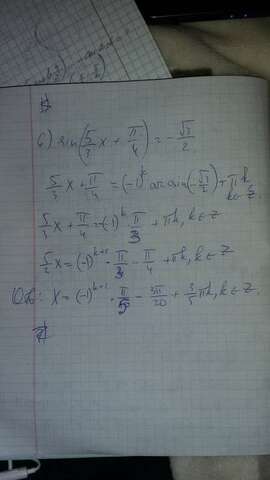 6) sin(5/3 x + π/4) = -√3/2
5/3 x + π/4 = (-1)^k arcsin(-√3/2) + πk k∈Z
5/3 x + π/4 = (-1)^k · π/3 + πk, k∈Z
5/3 x = (-1)^{k+1} · π/3 - π/4 + πk, k∈Z
Отв: x = (-1)^{k+1} · π/5 - 3π/20 + 3/5 πk, k∈Z.